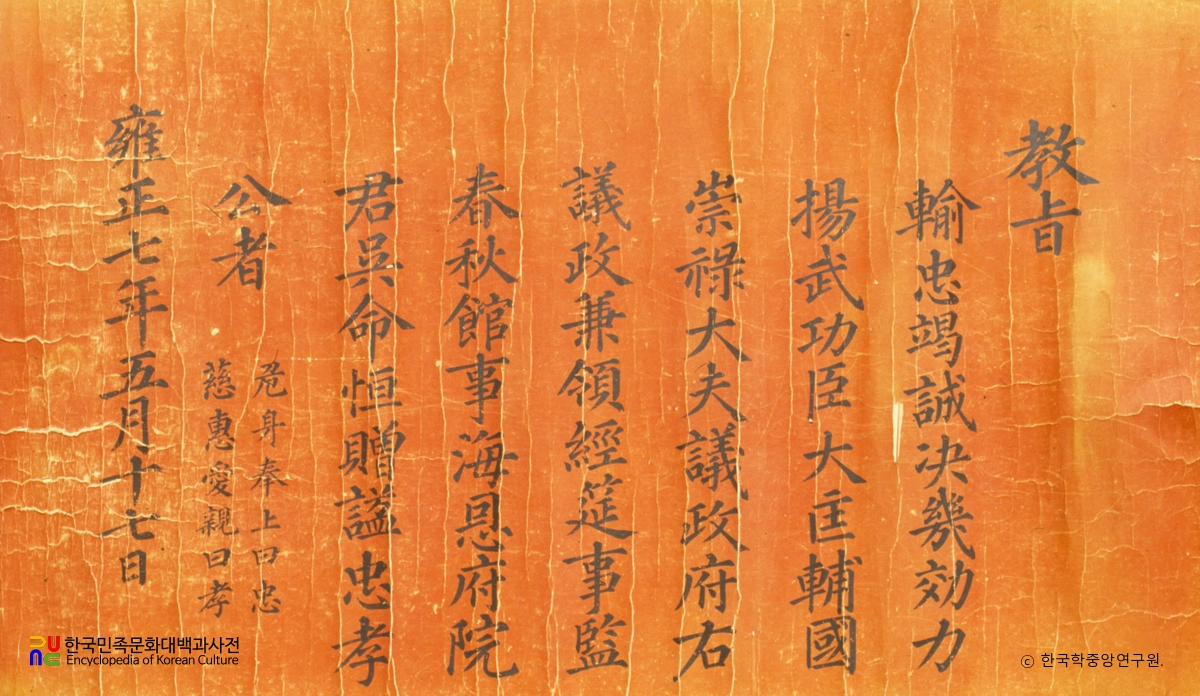 教旨
輸忠竭誠決幾効力
揚武功臣大匡輔國
崇祿大夫議政府右
議政兼領經筵事監
春秋館事海恩府院
君吳命恒贈諡忠孝
公者
危身奉上曰忠
慈惠愛親曰孝
雍正七年五月十七日
한국민족문화대백과사전
Encyclopedia of Korean Culture
ⓒ 한국학중앙연구원.